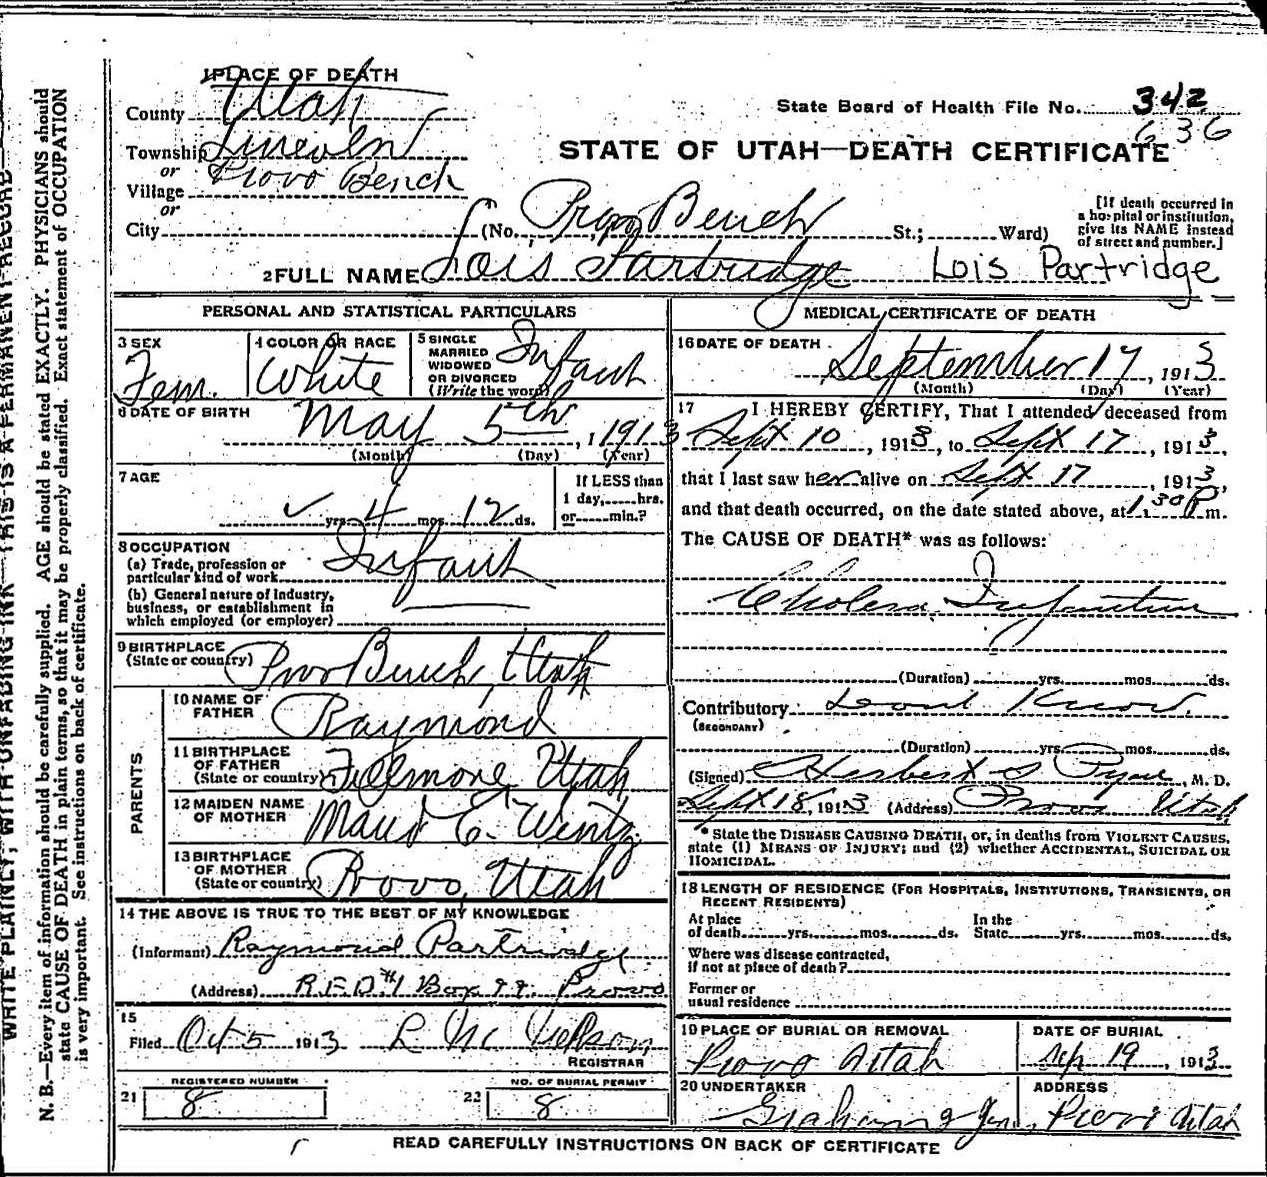 1PLACE OF DEATH
County Utah
Township Lincoln
or
Village Provo Bench
or
City
State Board of Health File No. 342
636
STATE OF UTAH—DEATH CERTIFICATE
(No. Provo Bench St.; Ward)
[If death occurred in
a hospital or institution,
give its NAME instead
of street and number.]
2FULL NAME Lois Partridge Lois Partridge
PERSONAL AND STATISTICAL PARTICULARS
3 SEX
Fem.
4 COLOR OR RACE
White
5 SINGLE
MARRIED
WIDOWED
OR DIVORCED
(Write the word)
Infant
6 DATE OF BIRTH
May 5th, 1913
(Month) (Day) (Year)
7 AGE
yrs. 4 mos. 12 ds.
If LESS than
1 day, hrs.
or min.?
8 OCCUPATION
(a) Trade, profession or
particular kind of work
Infant
(b) General nature of industry,
business, or establishment in
which employed (or employer)
9 BIRTHPLACE
(State or country)
Provo Bench, Utah
PARENTS
10 NAME OF
FATHER
Raymond
11 BIRTHPLACE
OF FATHER
(State or country)
Fillmore, Utah
12 MAIDEN NAME
OF MOTHER
Maud E. Wentz
13 BIRTHPLACE
OF MOTHER
(State or country)
Provo, Utah
14 THE ABOVE IS TRUE TO THE BEST OF MY KNOWLEDGE
(Informant) Raymond Partridge
(Address) R.F.D. #1 Box Provo
15
Filed Oct 5 1913
REGISTRAR
21
REGISTERED NUMBER
8
22
NO. OF BURIAL PERMIT
8
MEDICAL CERTIFICATE OF DEATH
16 DATE OF DEATH
September 17, 1913
(Month) (Day) (Year)
17 I HEREBY CERTIFY, That I attended deceased from
Sept 10, 1913, to Sept 17, 1913,
that I last saw her alive on Sept 17, 1913,
and that death occurred, on the date stated above, at 1:30 P m.
The CAUSE OF DEATH* was as follows:
Cholera Infantum
(Duration) yrs. mos. ds.
Contributory Dont Know.
(SECONDARY)
(Duration) yrs. mos. ds.
(Signed) Herbert S Pyne, M. D.
Sept 18, 1913 (Address) Provo Utah
* State the DISEASE CAUSING DEATH, or, in deaths from VIOLENT CAUSES,
state (1) MEANS OF INJURY; and (2) whether ACCIDENTAL, SUICIDAL OR
HOMICIDAL.
18 LENGTH OF RESIDENCE (FOR HOSPITALS, INSTITUTIONS, TRANSIENTS, OR
RECENT RESIDENTS)
At place
of death yrs. mos. ds.
In the
State yrs. mos. ds.
Where was disease contracted,
if not at place of death?
Former or
usual residence
19 PLACE OF BURIAL OR REMOVAL
Provo Utah
DATE OF BURIAL
Sep 19, 1913
20 UNDERTAKER
ADDRESS
Provo Utah
READ CAREFULLY INSTRUCTIONS ON BACK OF CERTIFICATE
WRITE PLAINLY, WITH UNFADING INK—THIS IS A PERMANENT RECORD
N. B.—Every item of information should be carefully supplied. AGE should be stated EXACTLY. PHYSICIANS should
state CAUSE OF DEATH in plain terms, so that it may be properly classified. Exact statement of OCCUPATION
is very important. See instructions on back of certificate.